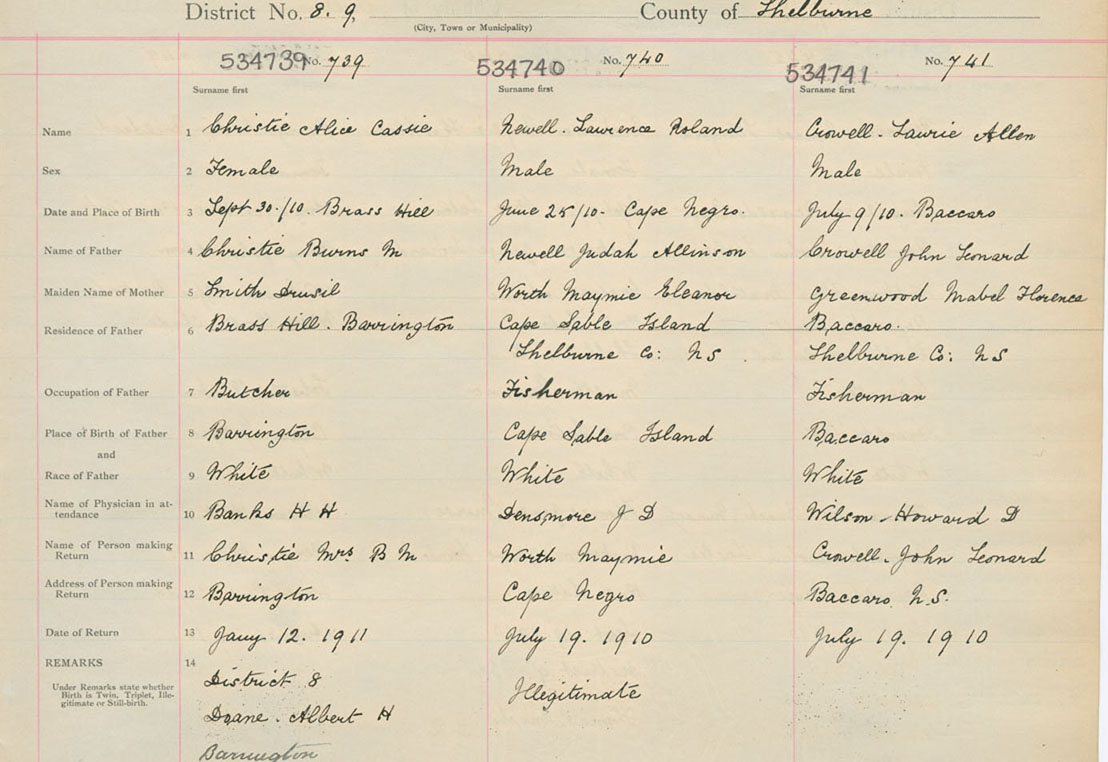 District No. 8. 9, County of Shelburne
(City, Town or Municipality)
534739 No. 739 534740 No. 740 534741 No. 741
Surname first Surname first Surname first
Name 1 Christie Alice Cassie Newell. Lawrence Roland Crowell - Laurie Allen
Sex 2 Female Male Male
Date and Place of Birth 3 Sept 30./10. Brass Hill June 25/10- Cape Negro. July 9/10. Baccaro
Name of Father 4 Christie Burns M Newell Judah Allinson Crowell John Leonard
Maiden Name of Mother 5 Smith Drusil Worth Maymie Eleanor Greenwood Mabel Florence
Residence of Father 6 Brass Hill. Barrington Cape Sable Island Baccaro.
Shelburne Co: NS. Shelburne Co: NS
Occupation of Father 7 Butcher Fisherman Fisherman
Place of Birth of Father 8 Barrington Cape Sable Island Baccaro
and
Race of Father 9 White White White
Name of Physician in at-
tendance 10 Banks H H Densmore J D Wilson - Howard D
Name of Person making
Return 11 Christie Mrs. B M Worth Maymie Crowell - John Leonard
Address of Person making
Return 12 Barrington Cape Negro Baccaro. N.S.
Date of Return 13 Jany 12. 1911 July 19. 1910 July 19. 1910
REMARKS 14
District 8 Illegitimate
Under Remarks state whether
Birth is Twin, Triplet, Ille-
gitimate or Still-birth.
Doane. Albert H
Barrington